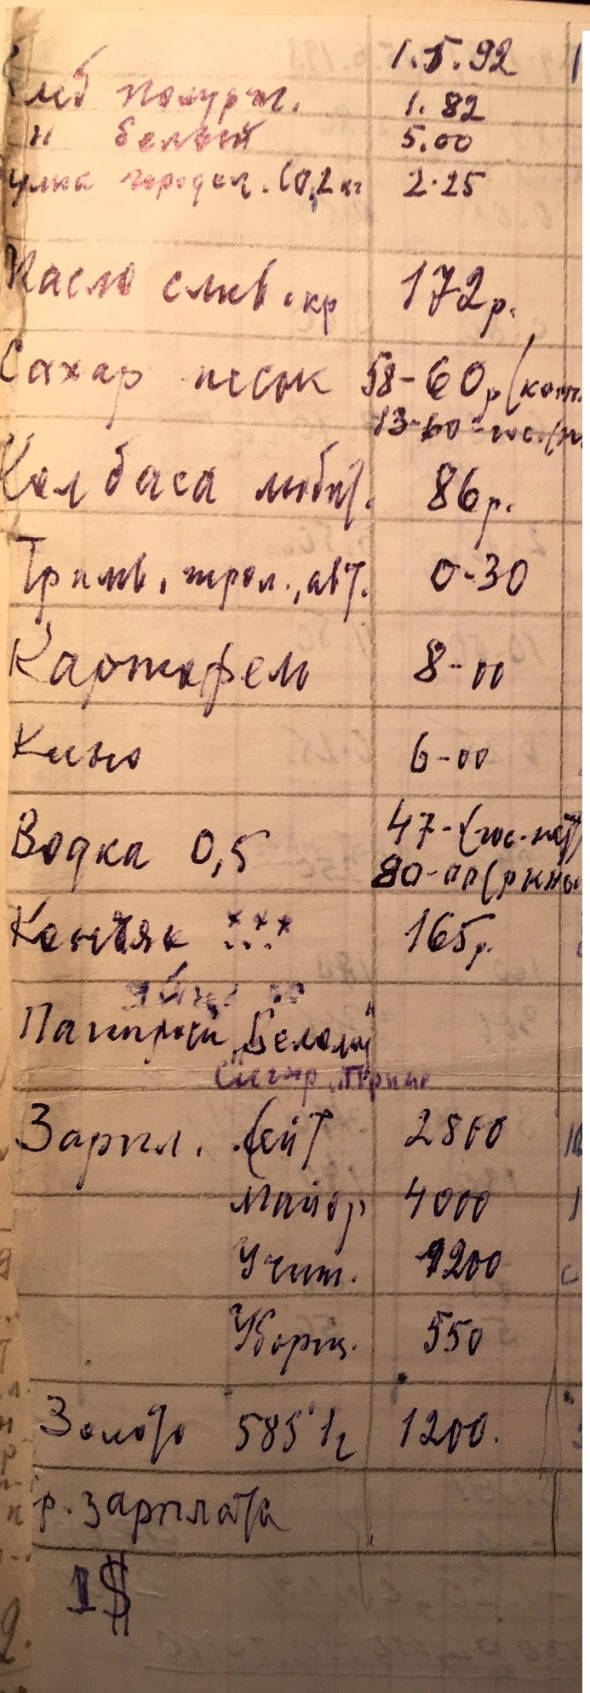 1.5.92
Хлеб полурж. 1.82
" белый 5.00
булка городск. (0,2 кг 2.25
Масло слив. кр 172р.
Сахар песок 58-60р (ком.
13-60 гос.
Колбаса любит. 86р.
Трамв., трол., авт. 0-30
Картофель 8-00
Кино 6-00
Водка 0,5 47-(гос.-нет)
80-00 (рынк
Коньяк *** 165р.
Папиросы "Беломор"
Сигар. "Прима
Зарпл. Лейт 2800
Майор 4000
Учит. 1200
Уборщ. 550
Золото 585° 1г 1200.
р. зарплата
1$